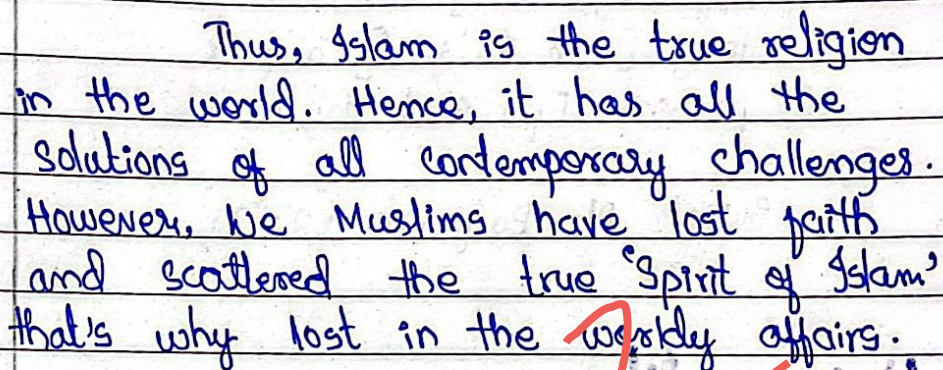 Thus, Islam is the true religion
in the world. Hence, it has all the
solutions of all contemporary challenges.
However, we Muslims have lost faith
and scattered the true 'Spirit of Islam'
that's why lost in the worldy affairs.